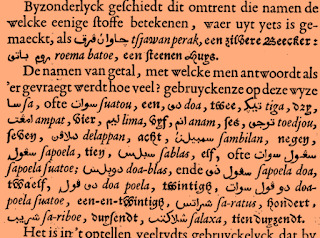 Byzonderlyck geschiedt dit omtrent die namen de
welcke eenige stoffe betekenen, waer uyt yets is ge-
maeckt, als چاوان فرق tsjawan perak, een zilvere Beecker:
roema batoe, een steenen Huys.
De namen van getal, met welcke men antwoordt als
'er gevraegt werdt hoe veel? gebruyckenze op deze wyze
سا sa, ofte سوات suatou, een, دو doa, twee, تيݢ tiga, dry,
امفت ampat, vier, ليم lima, vyf, انم anam, ses, توجه toedjou,
seven, دلافن delappan, acht, سمبيلن sambilan, negen,
سفول sapoela, tien, سبلس sablas, elf, ofte سفول سوات
sapoela suatoe: دوبلس doa-blas, ende سفول دو sapoela doa,
twaelf, دو فول doa poela, twintigh, دو فول سوات doa-
poela suatoe, een-en-twintigh, سراتس sa-ratus, hondert,
سريب sa-riboe, duysendt, سلاكس salaxa, tien duyzendt.
Het is in 't optellen veeltydts gebruyckelyck dat by